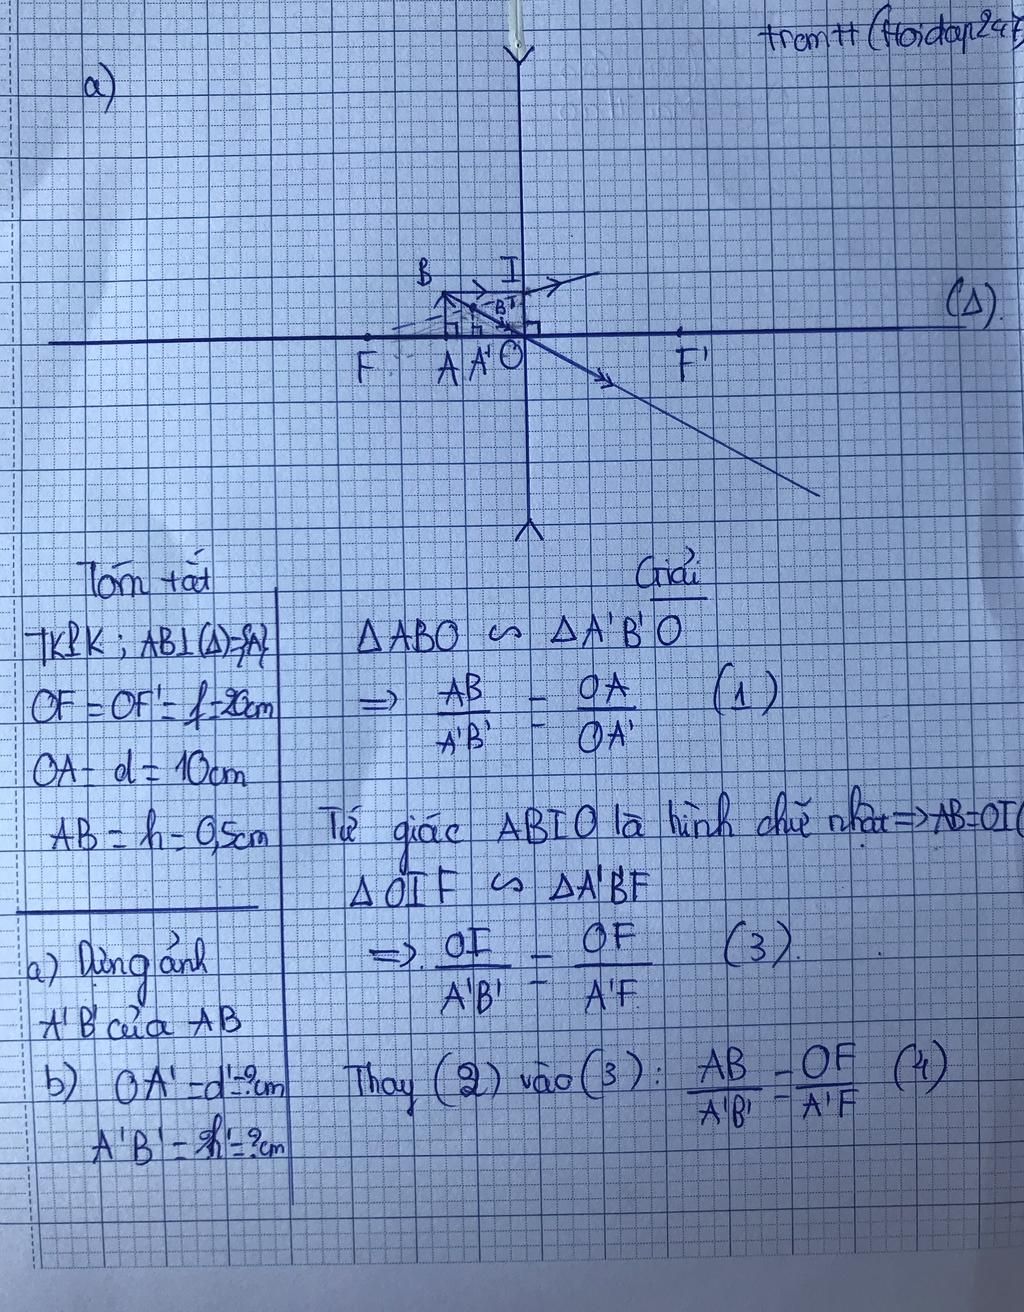 tramtt (Hoidap247
a)
B I
B'
(Δ).
F A A' O F'
Tóm tắt
TKPK ; AB⊥(Δ)={A}
OF = OF' = f = 20cm
OA = d = 10cm
AB = h = 0,5cm
a) Dựng ảnh
A'B' của AB
b) OA' = d' = ?cm
A'B' = h' = ?cm
Giải
Δ ABO ∽ Δ A'B'O
=> AB/A'B' = OA/OA' (1)
Tứ giác ABIO là hình chữ nhật => AB=OI(
Δ OIF ∽ Δ A'B'F
=> OI/A'B' = OF/A'F (3).
Thay (2) vào (3): AB/A'B' = OF/A'F (4)